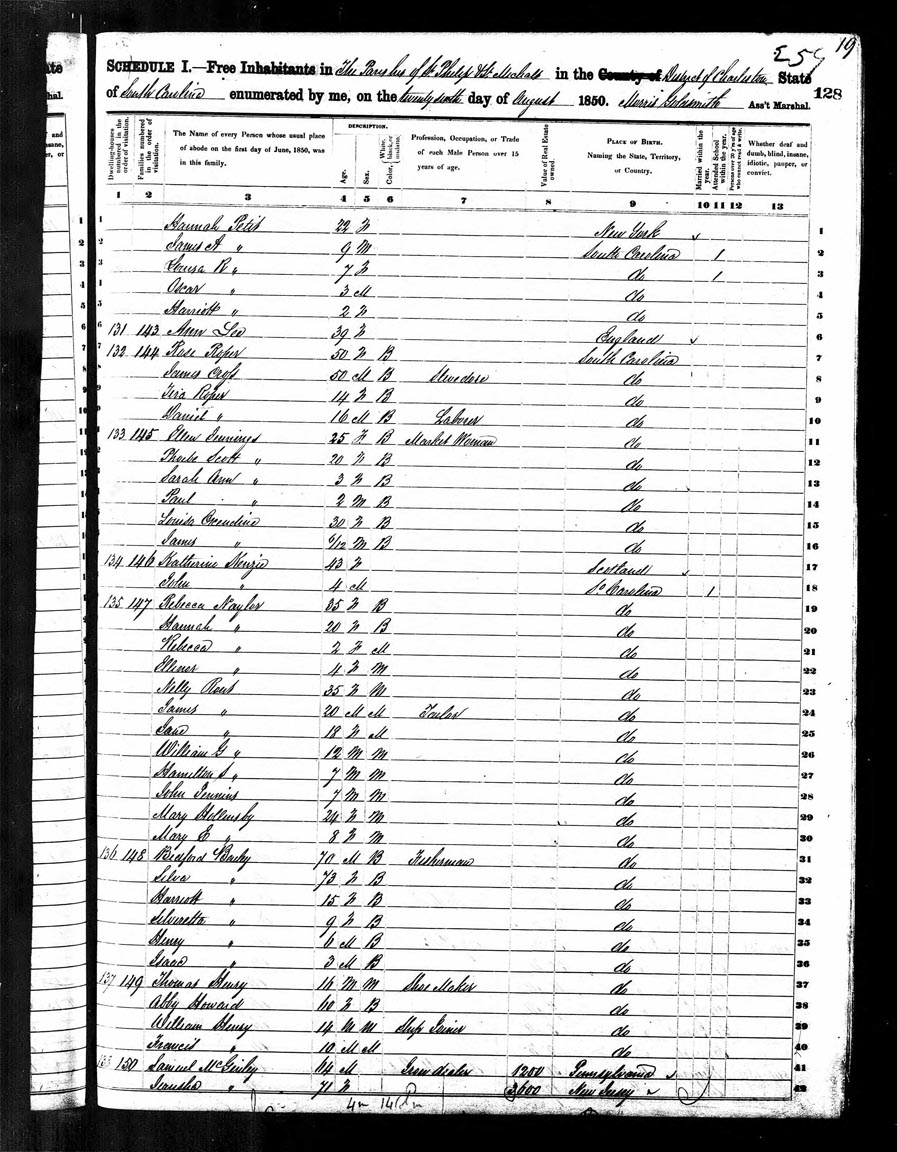 19
128
SCHEDULE I.—Free Inhabitants in The Parishes of St Philip & St Michaels in the County of District of Charleston State
of South Carolina enumerated by me, on the twenty sixth day of August 1850. Morris Goldsmith Ass't Marshal.
Dwelling-houses numbered in the order of visitation.
Families numbered in the order of visitation.
The Name of every Person whose usual place of abode on the first day of June, 1850, was in this family.
DESCRIPTION.
Age.
Sex.
White, black, or mulatto.
Color,
Profession, Occupation, or Trade of each Male Person over 15 years of age.
Value of Real Estate owned.
PLACE OF BIRTH. Naming the State, Territory, or Country.
Married within the year.
Attended School within the year.
Persons over 20 y'rs of age who cannot read & write.
Whether deaf and dumb, blind, insane, idiotic, pauper, or convict.
1 2 3 4 5 6 7 8 9 10 11 12 13
1 Hannah Petit 22 F New York 1
2 James A " 9 M South Carolina 1 2
3 Louisa R " 7 F do 1 3
4 Oscar " 3 M do 4
5 Harriott " 2 F do 5
6 131 143 Ann Lee 39 F England 6
7 132 144 Rose Roper 50 F B South Carolina 7
8 James 50 M B Stevedore do 8
9 Roper 14 F B do 9
10 Daniel " 16 M B Laborer do 10
11 133 145 Ellen Jennings 25 F B Market Woman do 11
12 Phoebe Scott " 20 F B do 12
13 Sarah Ann " 3 F B do 13
14 Paul " 2 M B do 14
15 Louisa Oxendine 30 F B do 15
16 James " 6/12 M B do 16
17 134 146 Katherine Kenzie 43 F Scotland 17
18 John " 4 M So Carolina 1 18
135 147 Rebecca Naylor 35 F B do 19
Hannah " 20 F B do 20
Rebecca " 2 F M do 21
Ellenor " 4 F M do 22
Nelly Rout 35 F M do 23
James " 20 M M Tailor do 24
Jane " 18 F M do 25
William G " 12 M M do 26
Hamilton S " 7 M M do 27
John Jennins 7 M M do 28
Mary Hollensby 24 F M do 29
Mary E " 8 F M do 30
136 148 Bedford Bailey 70 M B Fisherman do 31
Silva " 73 F B do 32
Harriott " 15 F B do 33
Silveretta " 9 F B do 34
Henry " 6 M B do 35
Isaac " 3 M B do 36
137 149 Thomas Henry 16 M M Shoe Maker do 37
Abby Howard 60 F B do 38
William Henry 14 M M Ship Joiner do 39
Francis " 10 M M do 40
138 150 Samuel McGinley 64 M 1200 Pennsylvania 41
" 71 F 3600 New Jersey 42